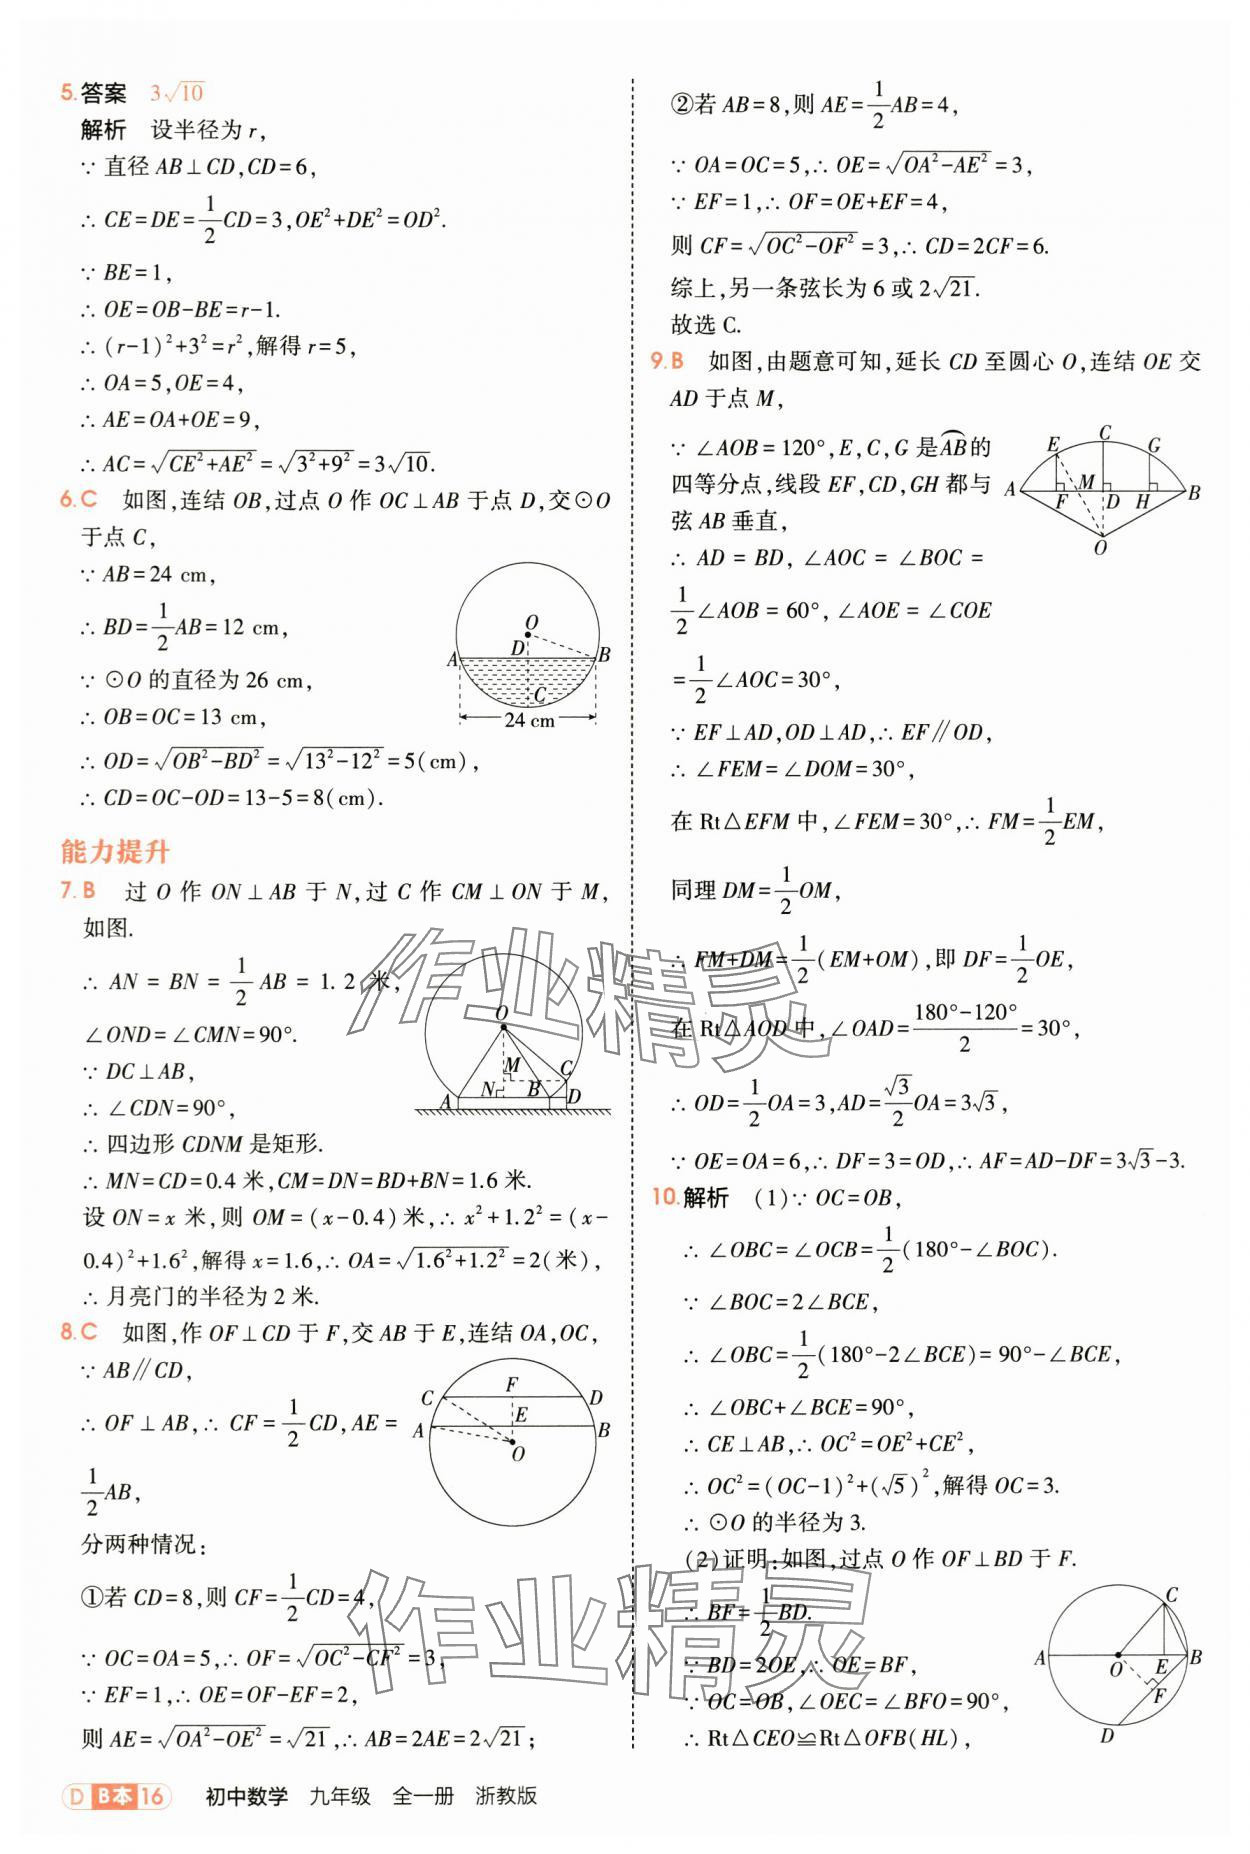 5.答案 3√10
解析 设半径为 r,
∵ 直径 AB⊥CD,CD=6,
∴ CE=DE=1/2CD=3,OE²+DE²=OD².
∵ BE=1,
∴ OE=OB-BE=r-1.
∴ (r-1)²+3²=r²,解得 r=5,
∴ OA=5,OE=4,
∴ AE=OA+OE=9,
∴ AC=√(CE²+AE²)=√(3²+9²)=3√10.
6.C 如图,连结 OB,过点 O 作 OC⊥AB 于点 D,交⊙O
于点 C,
∵ AB=24 cm,
∴ BD=1/2AB=12 cm,
∵ ⊙O 的直径为 26 cm,
∴ OB=OC=13 cm,
∴ OD=√(OB²-BD²)=√(13²-12²)=5(cm),
∴ CD=OC-OD=13-5=8(cm).
O
D
A
B
C
24 cm
能力提升
7.B 过 O 作 ON⊥AB 于 N,过 C 作 CM⊥ON 于 M,
如图.
∴ AN = BN = 1/2 AB = 1.2 米,
∠OND=∠CMN=90°.
∵ DC⊥AB,
∴ ∠CDN=90°,
∴ 四边形 CDNM 是矩形.
∴ MN=CD=0.4 米,CM=DN=BD+BN=1.6 米.
设 ON=x 米,则 OM=(x-0.4)米,∴ x²+1.2²=(x-
0.4)²+1.6²,解得 x=1.6,∴ OA=√(1.6²+1.2²)=2(米),
∴ 月亮门的半径为 2 米.
O
M
C
N
B
A
D
8.C 如图,作 OF⊥CD 于 F,交 AB 于 E,连结 OA,OC,
∵ AB∥CD,
∴ OF⊥AB,∴ CF=1/2CD,AE=
1/2AB,
分两种情况:
①若 CD=8,则 CF=1/2CD=4,
∵ OC=OA=5,∴ OF=√(OC²-CF²)=3,
∵ EF=1,∴ OE=OF-EF=2,
则 AE=√(OA²-OE²)=√21,∴ AB=2AE=2√21;
F
C
D
E
A
B
O
②若 AB=8,则 AE=1/2AB=4,
∵ OA=OC=5,∴ OE=√(OA²-AE²)=3,
∵ EF=1,∴ OF=OE+EF=4,
则 CF=√(OC²-OF²)=3,∴ CD=2CF=6.
综上,另一条弦长为 6 或 2√21.
故选 C.
9.B 如图,由题意可知,延长 CD 至圆心 O,连结 OE 交
AD 于点 M,
∵ ∠AOB=120°,E,C,G 是⌒AB的
四等分点,线段 EF,CD,GH 都与
弦 AB 垂直,
∴ AD = BD, ∠AOC = ∠BOC =
1/2∠AOB = 60°, ∠AOE = ∠COE
=1/2∠AOC=30°,
∵ EF⊥AD,OD⊥AD,∴ EF∥OD,
∴ ∠FEM=∠DOM=30°,
在 Rt△EFM 中,∠FEM=30°,∴ FM=1/2EM,
同理 DM=1/2OM,
∴ FM+DM=1/2(EM+OM),即 DF=1/2OE,
在 Rt△AOD 中,∠OAD=(180°-120°)/2=30°,
∴ OD=1/2OA=3,AD=√3/2OA=3√3,
∵ OE=OA=6,∴ DF=3=OD,∴ AF=AD-DF=3√3-3.
C
E
G
M
A
F
D
H
B
O
10.解析 (1)∵ OC=OB,
∴ ∠OBC=∠OCB=1/2(180°-∠BOC).
∵ ∠BOC=2∠BCE,
∴ ∠OBC=1/2(180°-2∠BCE)=90°-∠BCE,
∴ ∠OBC+∠BCE=90°,
∴ CE⊥AB,∴ OC²=OE²+CE²,
∴ OC²=(OC-1)²+(√5)²,解得 OC=3.
∴ ⊙O 的半径为 3.
(2)证明:如图,过点 O 作 OF⊥BD 于 F.
∴ BF=1/2BD.
∵ BD=2OE,∴ OE=BF,
∵ OC=OB,∠OEC=∠BFO=90°,
∴ Rt△CEO≌Rt△OFB(HL),
C
A
O
E
B
F
D
作业精灵
作业精灵
D B本 16 初中数学 九年级 全一册 浙教版